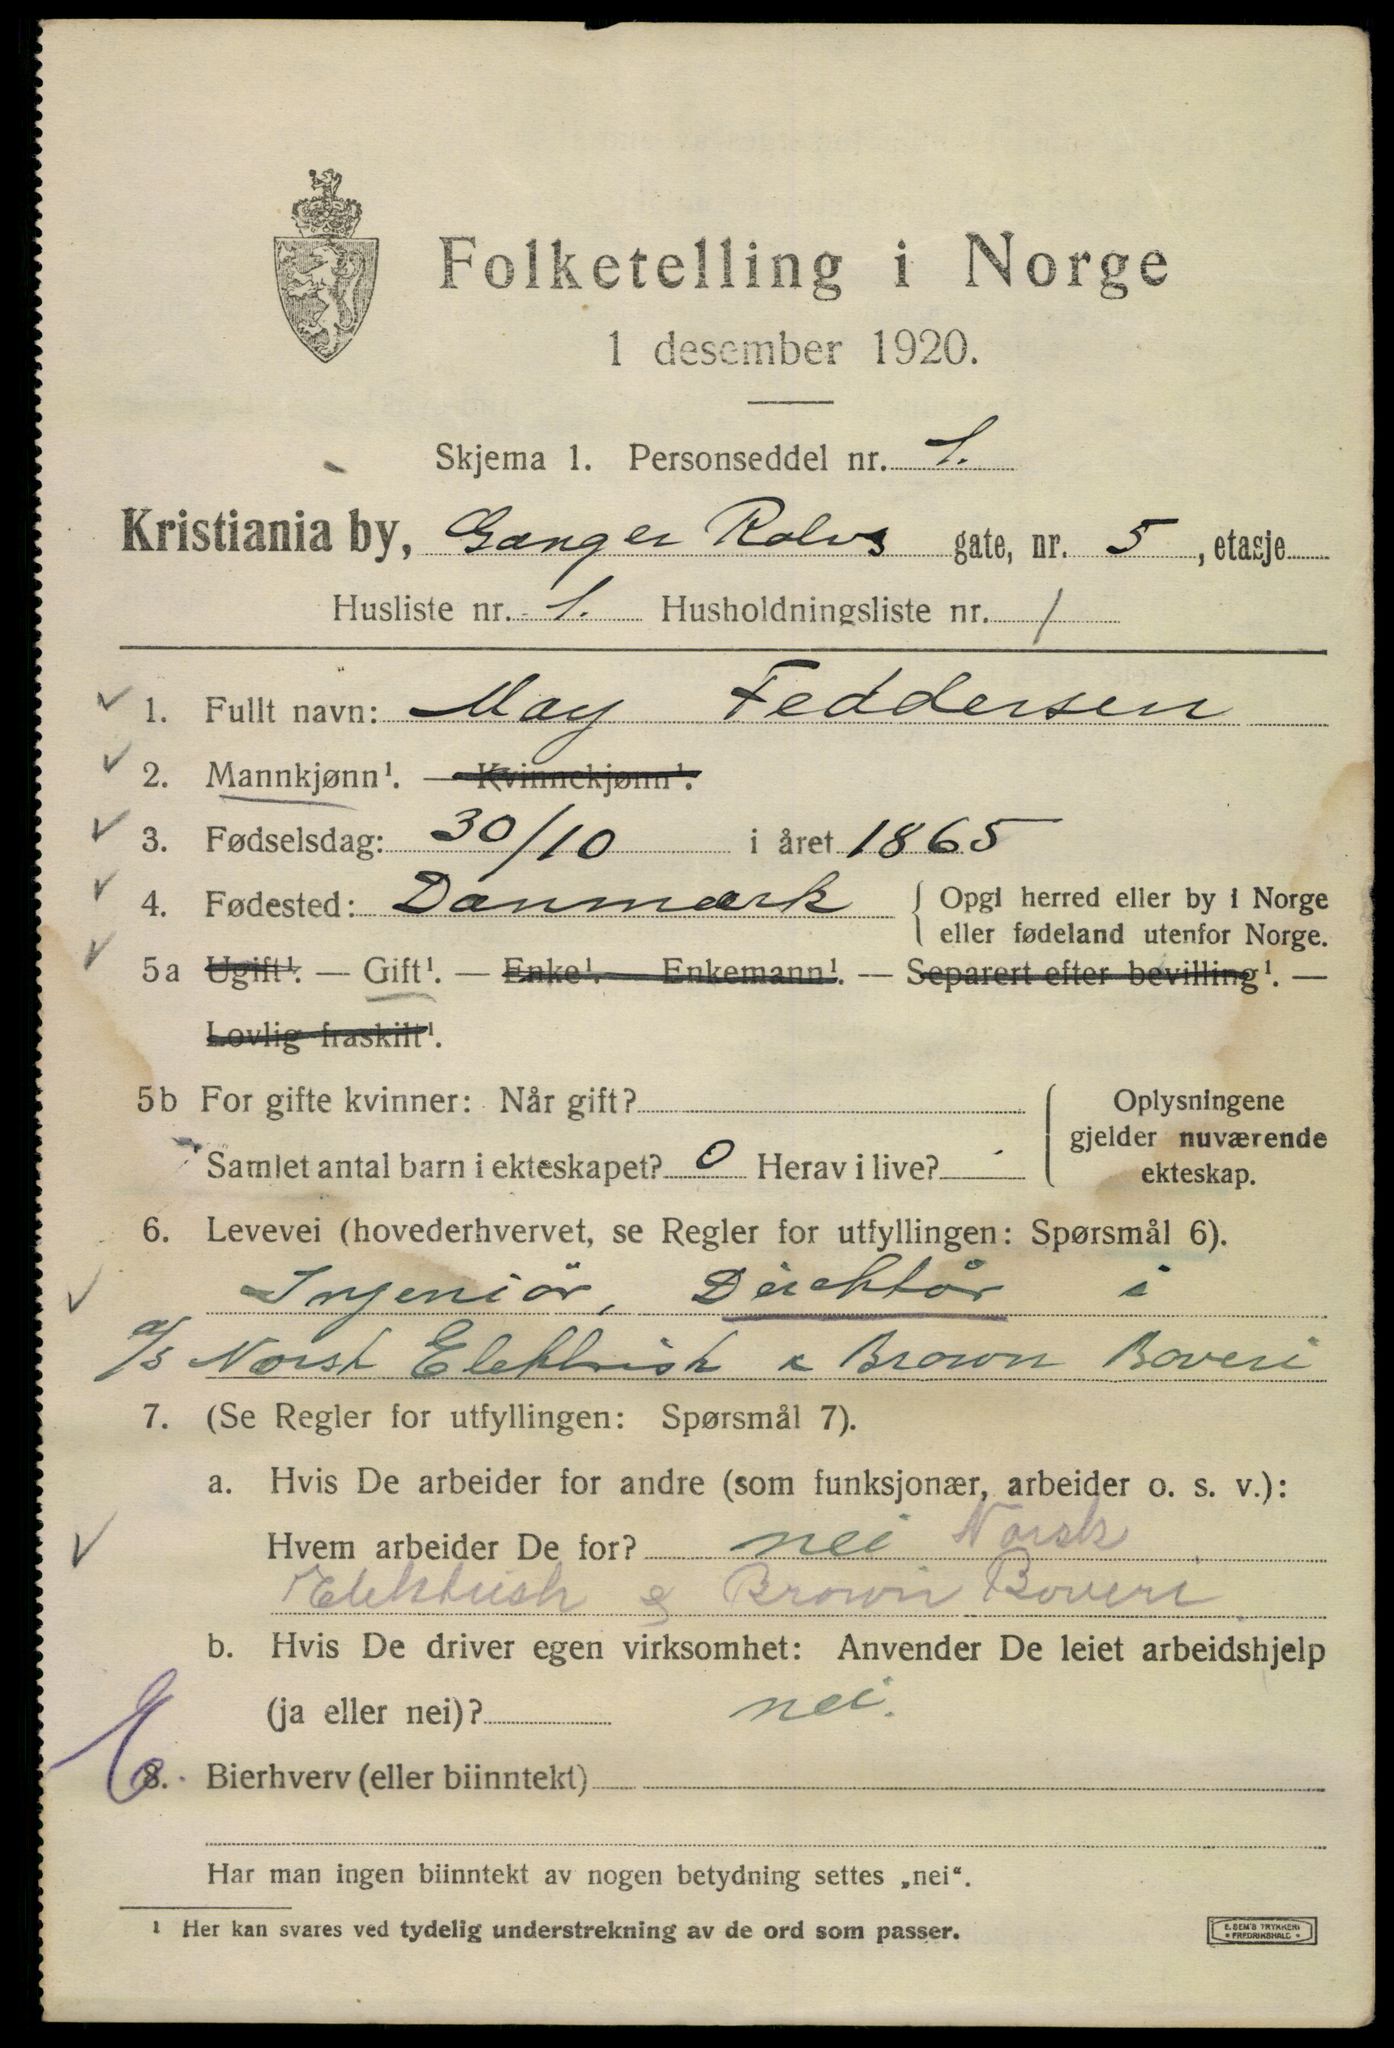 Folketelling i Norge
1 desember 1920.
Skjema 1. Personseddel nr. 1.
Kristiania by, Ganger Rolvs gate, nr. 5, etasje
Husliste nr. 1. Husholdningsliste nr. 1
1. Fullt navn: May Feddersen
2. Mannkjønn¹. — Kvinnekjønn¹.
3. Fødselsdag: 30/10 i året 1865
4. Fødested: Danmark { Opgi herred eller by i Norge
eller fødeland utenfor Norge.
5a Ugift¹. — Gift¹. — Enke¹. — Enkemann¹. — Separert efter bevilling¹. —
Lovlig fraskilt¹.
5b For gifte kvinner: Når gift?
Samlet antal barn i ekteskapet? 0 Herav i live? -
{ Oplysningene
gjelder nuværende
ekteskap.
6. Levevei (hovederhvervet, se Regler for utfyllingen: Spørsmål 6).
Ingeniör, Direktör i
a/s Norsk Elektrisk & Brown Boveri
7. (Se Regler for utfyllingen: Spørsmål 7).
a. Hvis De arbeider for andre (som funksjonær, arbeider o. s. v.):
Hvem arbeider De for? nei Norsk
Elektrisk & Brown Boveri
b. Hvis De driver egen virksomhet: Anvender De leiet arbeidshjelp
(ja eller nei)? nei.
8. Bierhverv (eller biinntekt) —
Har man ingen biinntekt av nogen betydning settes „nei“.
¹ Her kan svares ved tydelig understrekning av de ord som passer.
E. SEM'S TRYKKERI
* FREDRIKSHALD *